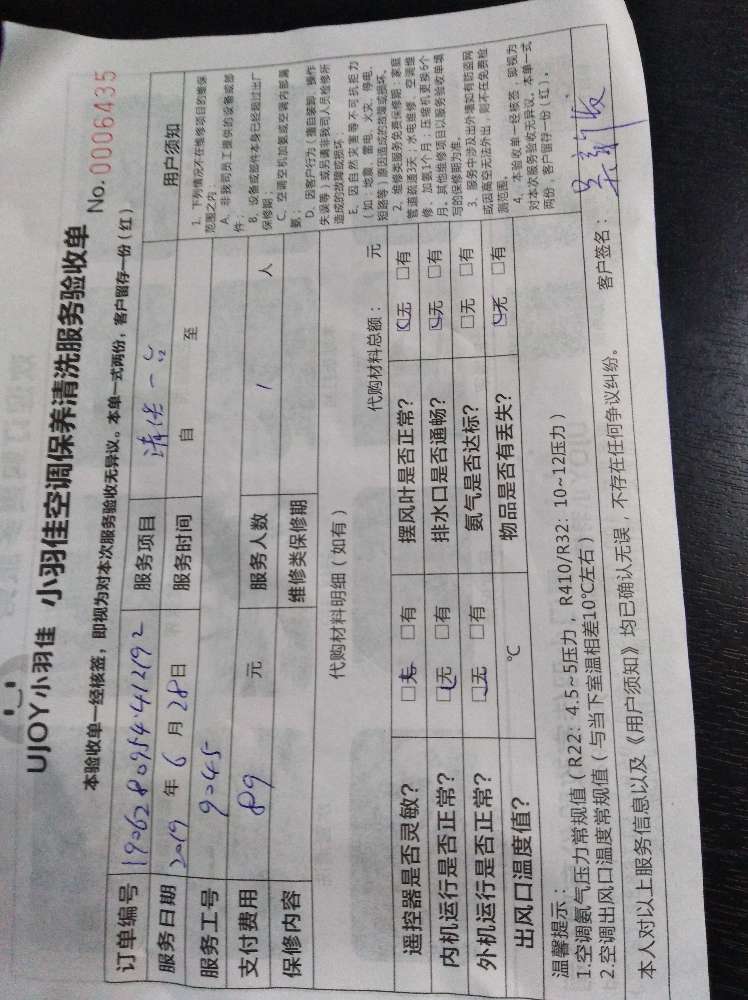 UJOY小羽佳 小羽佳空调保养清洗服务验收单 No. 0006435
本验收单一经核签，即视为对本次服务验收无异议。本单一式两份，客户留存一份（红）
订单编号 190628 0954 412192 服务项目 清洗一台
服务日期 2019 年 6 月 28 日 服务时间 自 至
服务工号 9045
支付费用 89 元 服务人数 1 人
保修内容 维修类保修期
代购材料明细（如有）
代购材料总额： 元
遥控器是否灵敏？ □无 □有 摆风叶是否正常？ □无 □有
内机运行是否正常？ □无 □有 排水口是否通畅？ □无 □有
外机运行是否正常？ □无 □有 氨气是否达标？ □无 □有
出风口温度值？ ℃ 物品是否有丢失？ □无 □有
用户须知
1. 下列情况不在维修项目的维保
范围之内：
A. 非我司员工提供的设备或部
件；
B. 设备或部件本身已经超过出厂
保修期；
C. 空调空机加氨或空调内部漏
氨；
D. 因客户行为（擅自装卸、操作
失误等）或另请非我司人员检修所
造成的故障或损坏；
E. 因自然灾害等不可抗拒力
（如：地震、雷电、火灾、停电、
短路等）原因造成的故障或损坏。
2. 维修类服务免费保修期：家庭
管道疏通3天，水电维修、空调维
修、加氨3个月；压缩机更换6个
月。其他维修项目以服务验收单填
写的保修期为准。
3. 服务中涉及出外墙如有防盗网
或因高空无法外出，则不在免费检
测范围。
4. 本验收单一经核签，即视为
对本次服务验收无异议。本单一式
两份，客户留存一份（红）。
温馨提示：
1.空调氨气压力常规值（R22：4.5~5压力，R410/R32：10~12压力）
2.空调出风口温度常规值（与当下室温相差10℃左右）
本人对以上服务信息以及《用户须知》均已确认无误，不存在任何争议纠纷。 客户签名：